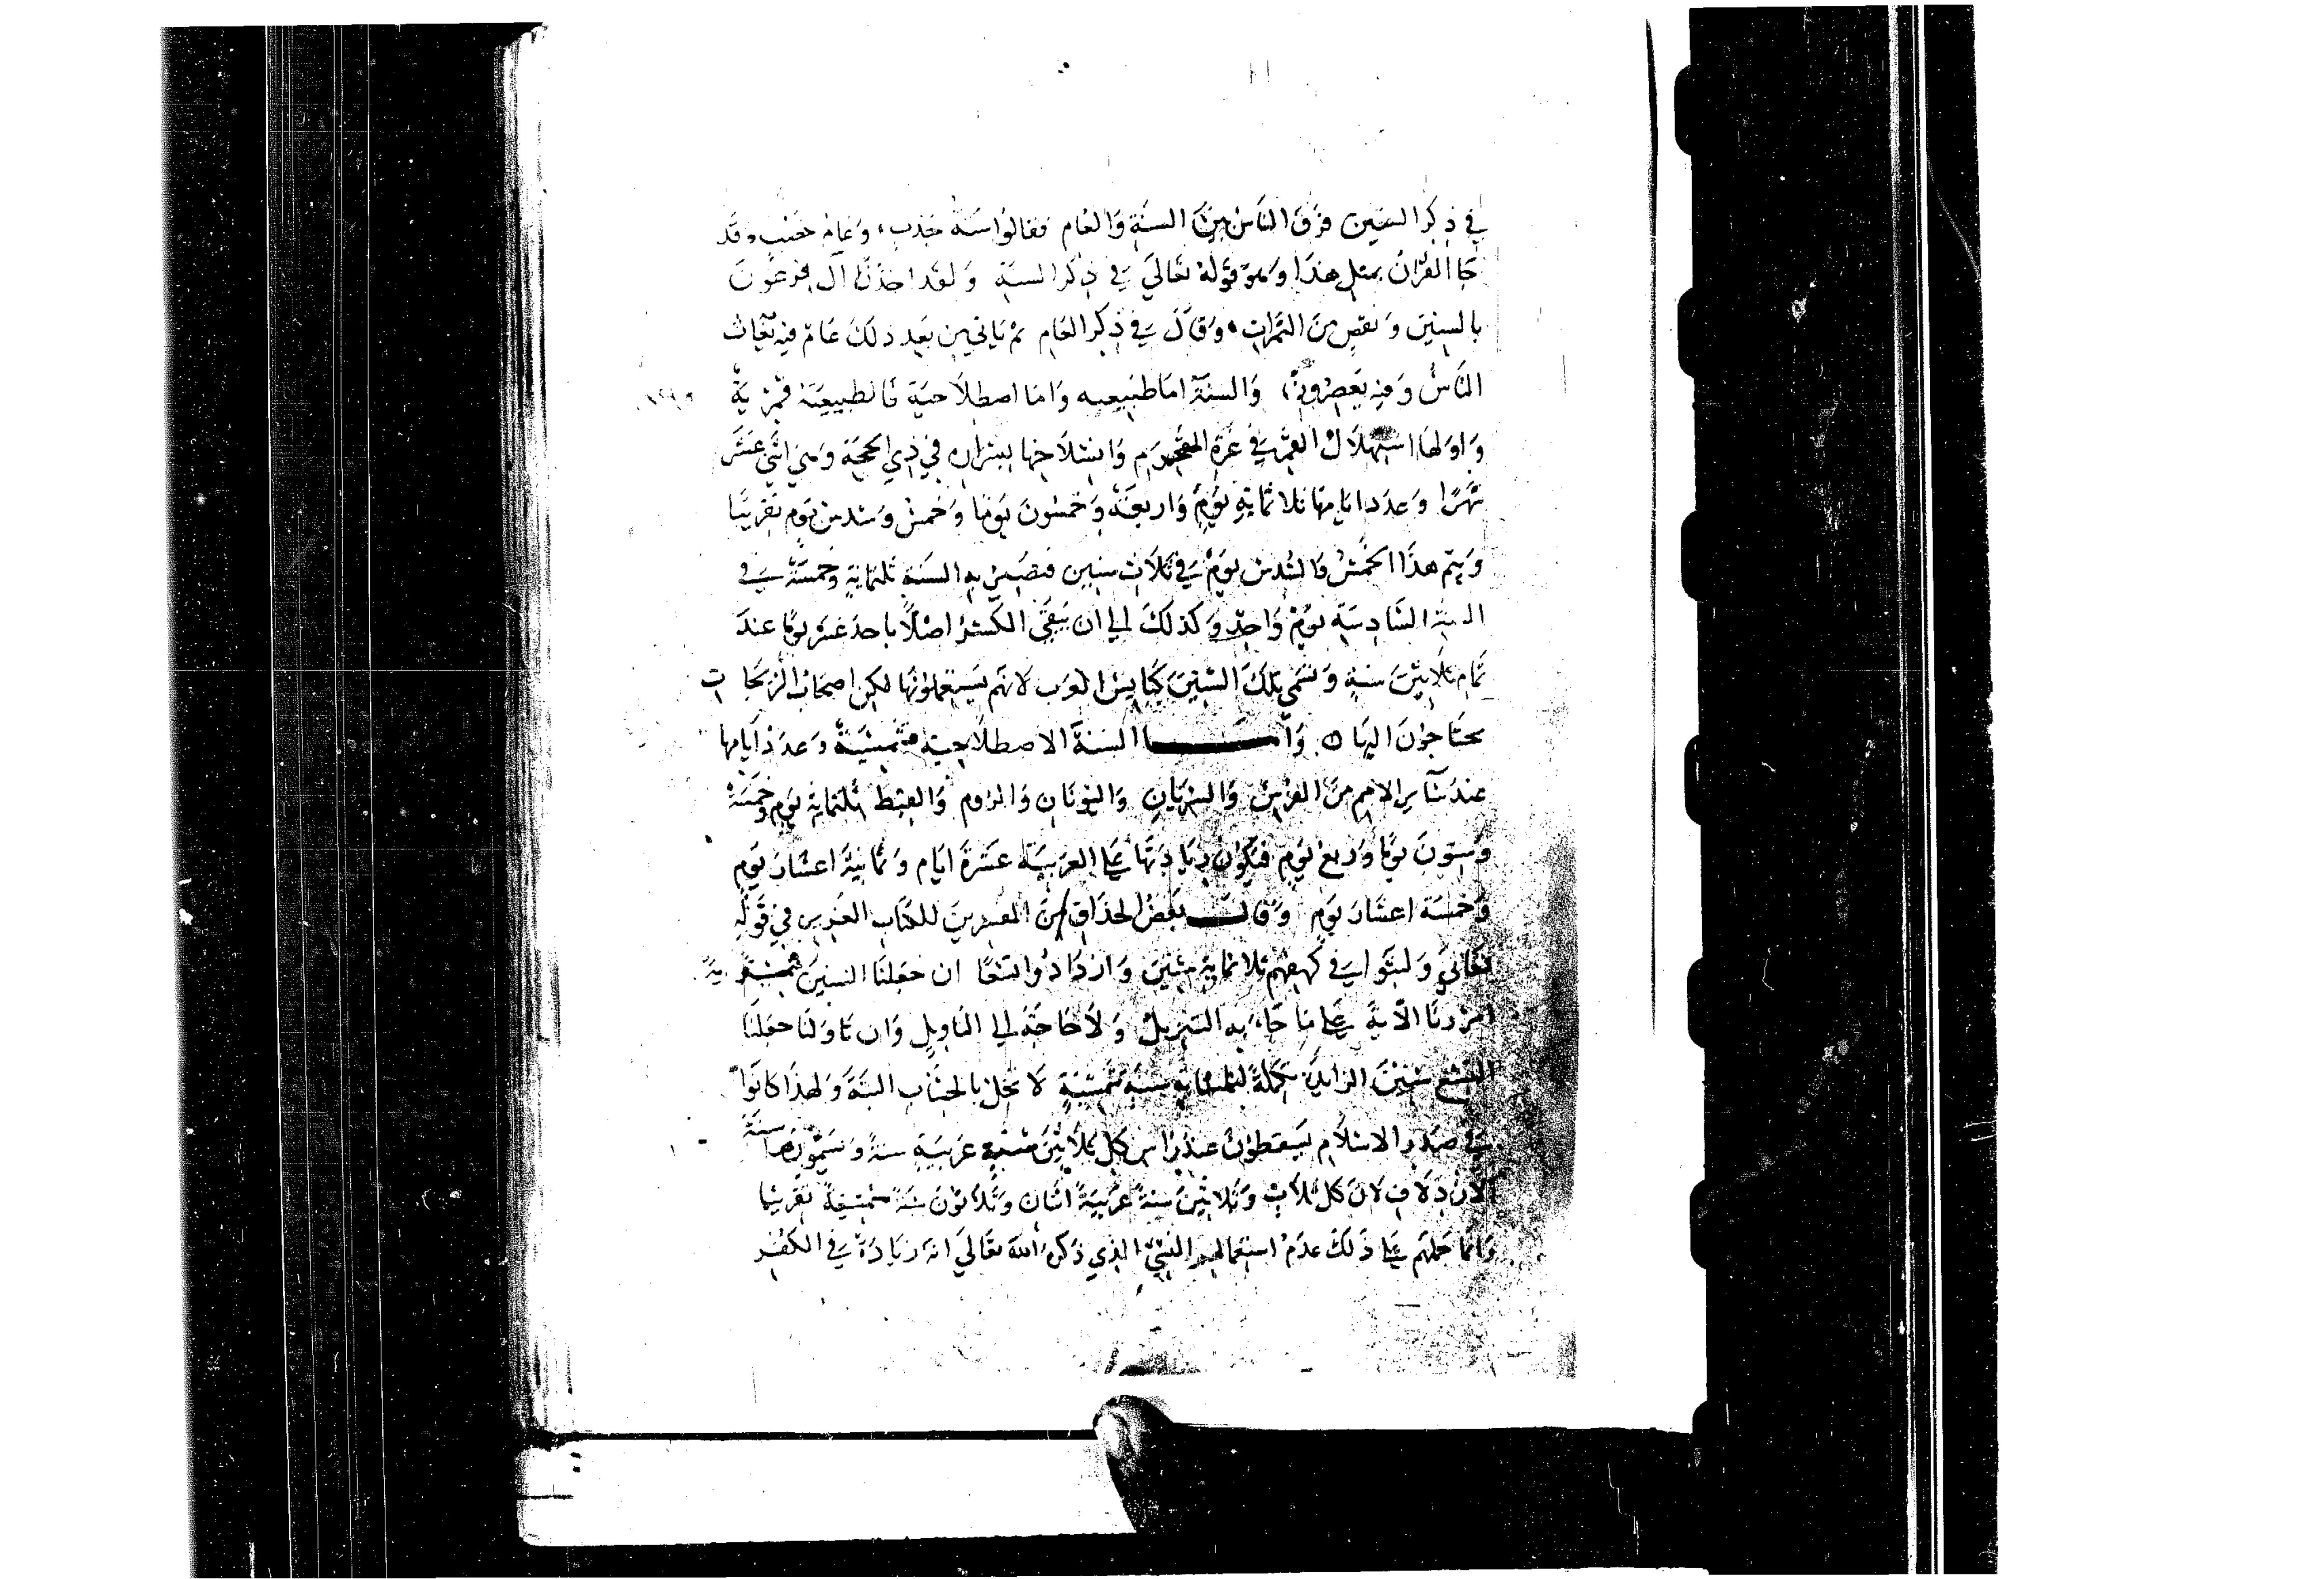 في ذكر السنين فرق الناس بين السنة والعام فقالوا سنة جدب، وعام خصب وقد
جا القران بمثل هذا وهو قوله تعالي في ذكر السنة ولقد اخذنا آل فرعون
بالسنين ونقص من الثمرات، وقال في ذكر العام ثم ياتي من بعد ذلك عام فيه يغاث
الناس وفيه يعصرون، والسنة اما طبيعيه واما اصطلاحية فالطبيعية قمرية
واولها استهلال القمر في غرة المحرم وانسلاخها بسراره في ذي الحجة وهي اثني عشر
شهرا وعدد ايامها ثلاثماية يوم واربعة وخمسون يوما وخمس وسدس يوم تقريبا
ويتم هذا الخمس والسدس يوم في ثلاث سنين فتصير به السنة ثلثماية وخمسة في
السنة السادسة يوم واحد وكذلك الي ان يبقي الكسر اصلا باحد عشر يوما عند
تمام ثلاثين سنة وتسمي تلك السنين كبايس العرب لانهم يستعملونها لكن اصحاب الزيجات
يحتاجون اليها ه واما السنة الاصطلاحية شمسية وعدد ايامها
عند ساير الامم من الفرس والسريان واليونان والروم والقبط ثلثماية يوم وخمسة
وستون يوما وربع يوم فتكون زيادتها علي العربية عشرة ايام وثمانية اعشار يوم
وخمسة اعشار يوم وقال بعض الحذاق من المفسرين للكتاب العزيز في قوله
تعالي ولبثوا في كهفهم ثلاثماية سنين وازدادوا تسعا ان جعلنا السنين شمسية
امررنا الآية علي ما جاء به التنزيل ولا حاجة الي التاويل وان تاولنا جعلنا
التسع سنين الزايدة تكملة لثلثماية سنة شمسية لا تخل بالحساب البتة ولهذا كانوا
في صدر الاسلام يسقطون عند راس كل ثلاثين سنة عربية سنة ويسمونها سنة
الازدلاف لان كل ثلاث وثلاثين سنة عربية اثنان وثلاثون سنة شمسية تقريبا
وانما حملهم علي ذلك عدم استعمالهم النسيء الذي ذكره الله تعالي انه زيادة في الكفر